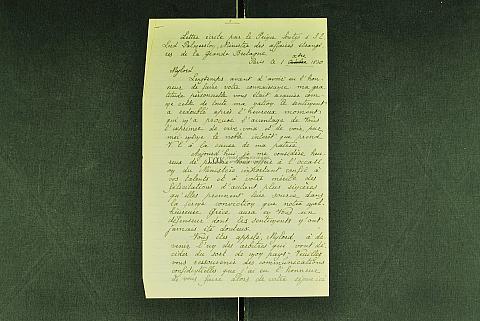 Lettre écrite par le Prince Soutzo à S.E.
Lord Palmerston, Ministre des affaires étrangè-
res de la Grande Bretagne
Paris le 1 1830
Mylord,
Longtemps avant d'avoir eu l'hon-
neur de faire votre connaissance ma gra-
titude personnelle vous était acquise com-
me celle de toute ma nation. Ce sentiment
a redoublé après l'heureux moment
qui m'a procuré l'avantage de Vous
l'exprimer de vive voix et de voir par
moi-même le noble intérêt que prend
V. E. à la cause de ma patrie.
Aujourd'hui je me considère heu-
reux de Vous offrir à l'occasi-
on du Ministère important confié à
vos talents et à votre mérite des
félicitations d'autant plus sincères
qu'elles prennent leur source dans
la ferme conviction que notre mal-
heureuse Grèce aura en Vous un
défenseur dont les sentiments n'ont
jamais été douteux.
Vous êtes appelé, Mylord, à de-
venir l'un des arbitres qui vont dé-
cider du sort de mon pays. Veuillez
vous ressouvenir des communications
confidentielles que j'ai eu l'honneur
de vous faire alors de votre séjour ici